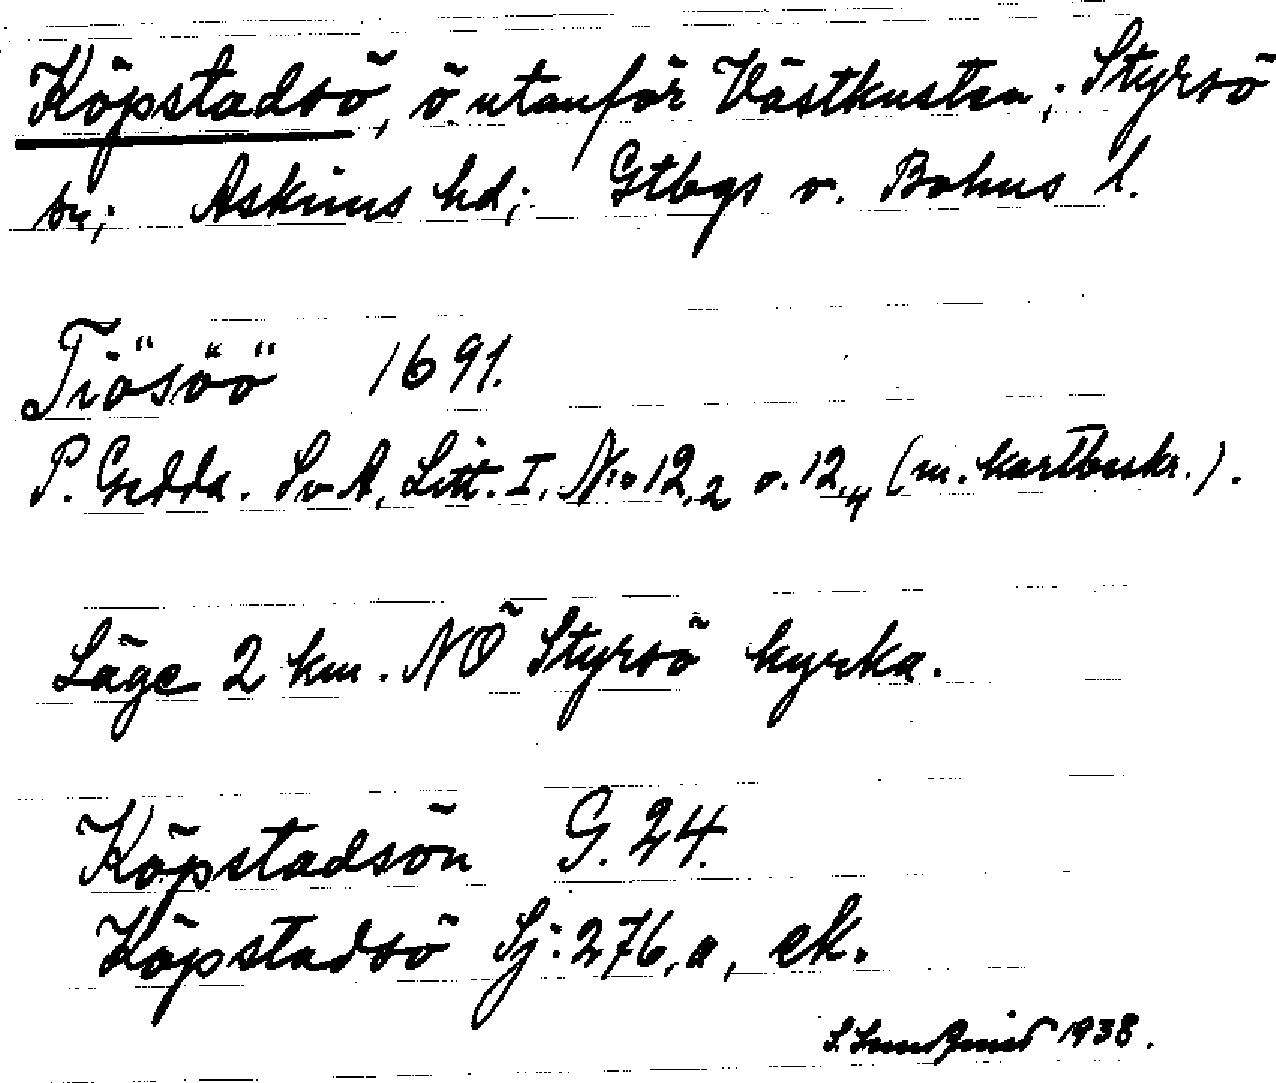 Köpstadsö, ö utanför Västkusten; Styrsö
sn; Askims hd; Gtbgs o. Bohus l.
Tiösöö 1691.
P. Gedda. SvA, Litt. I, No 12,2 o. 12,4 (m. kartbeskr.).
Läge 2 km. NÖ Styrsö kyrka.
Köpstadsön G. 24.
Köpstadsö Sj: 276, a, ek.
S. 1938.